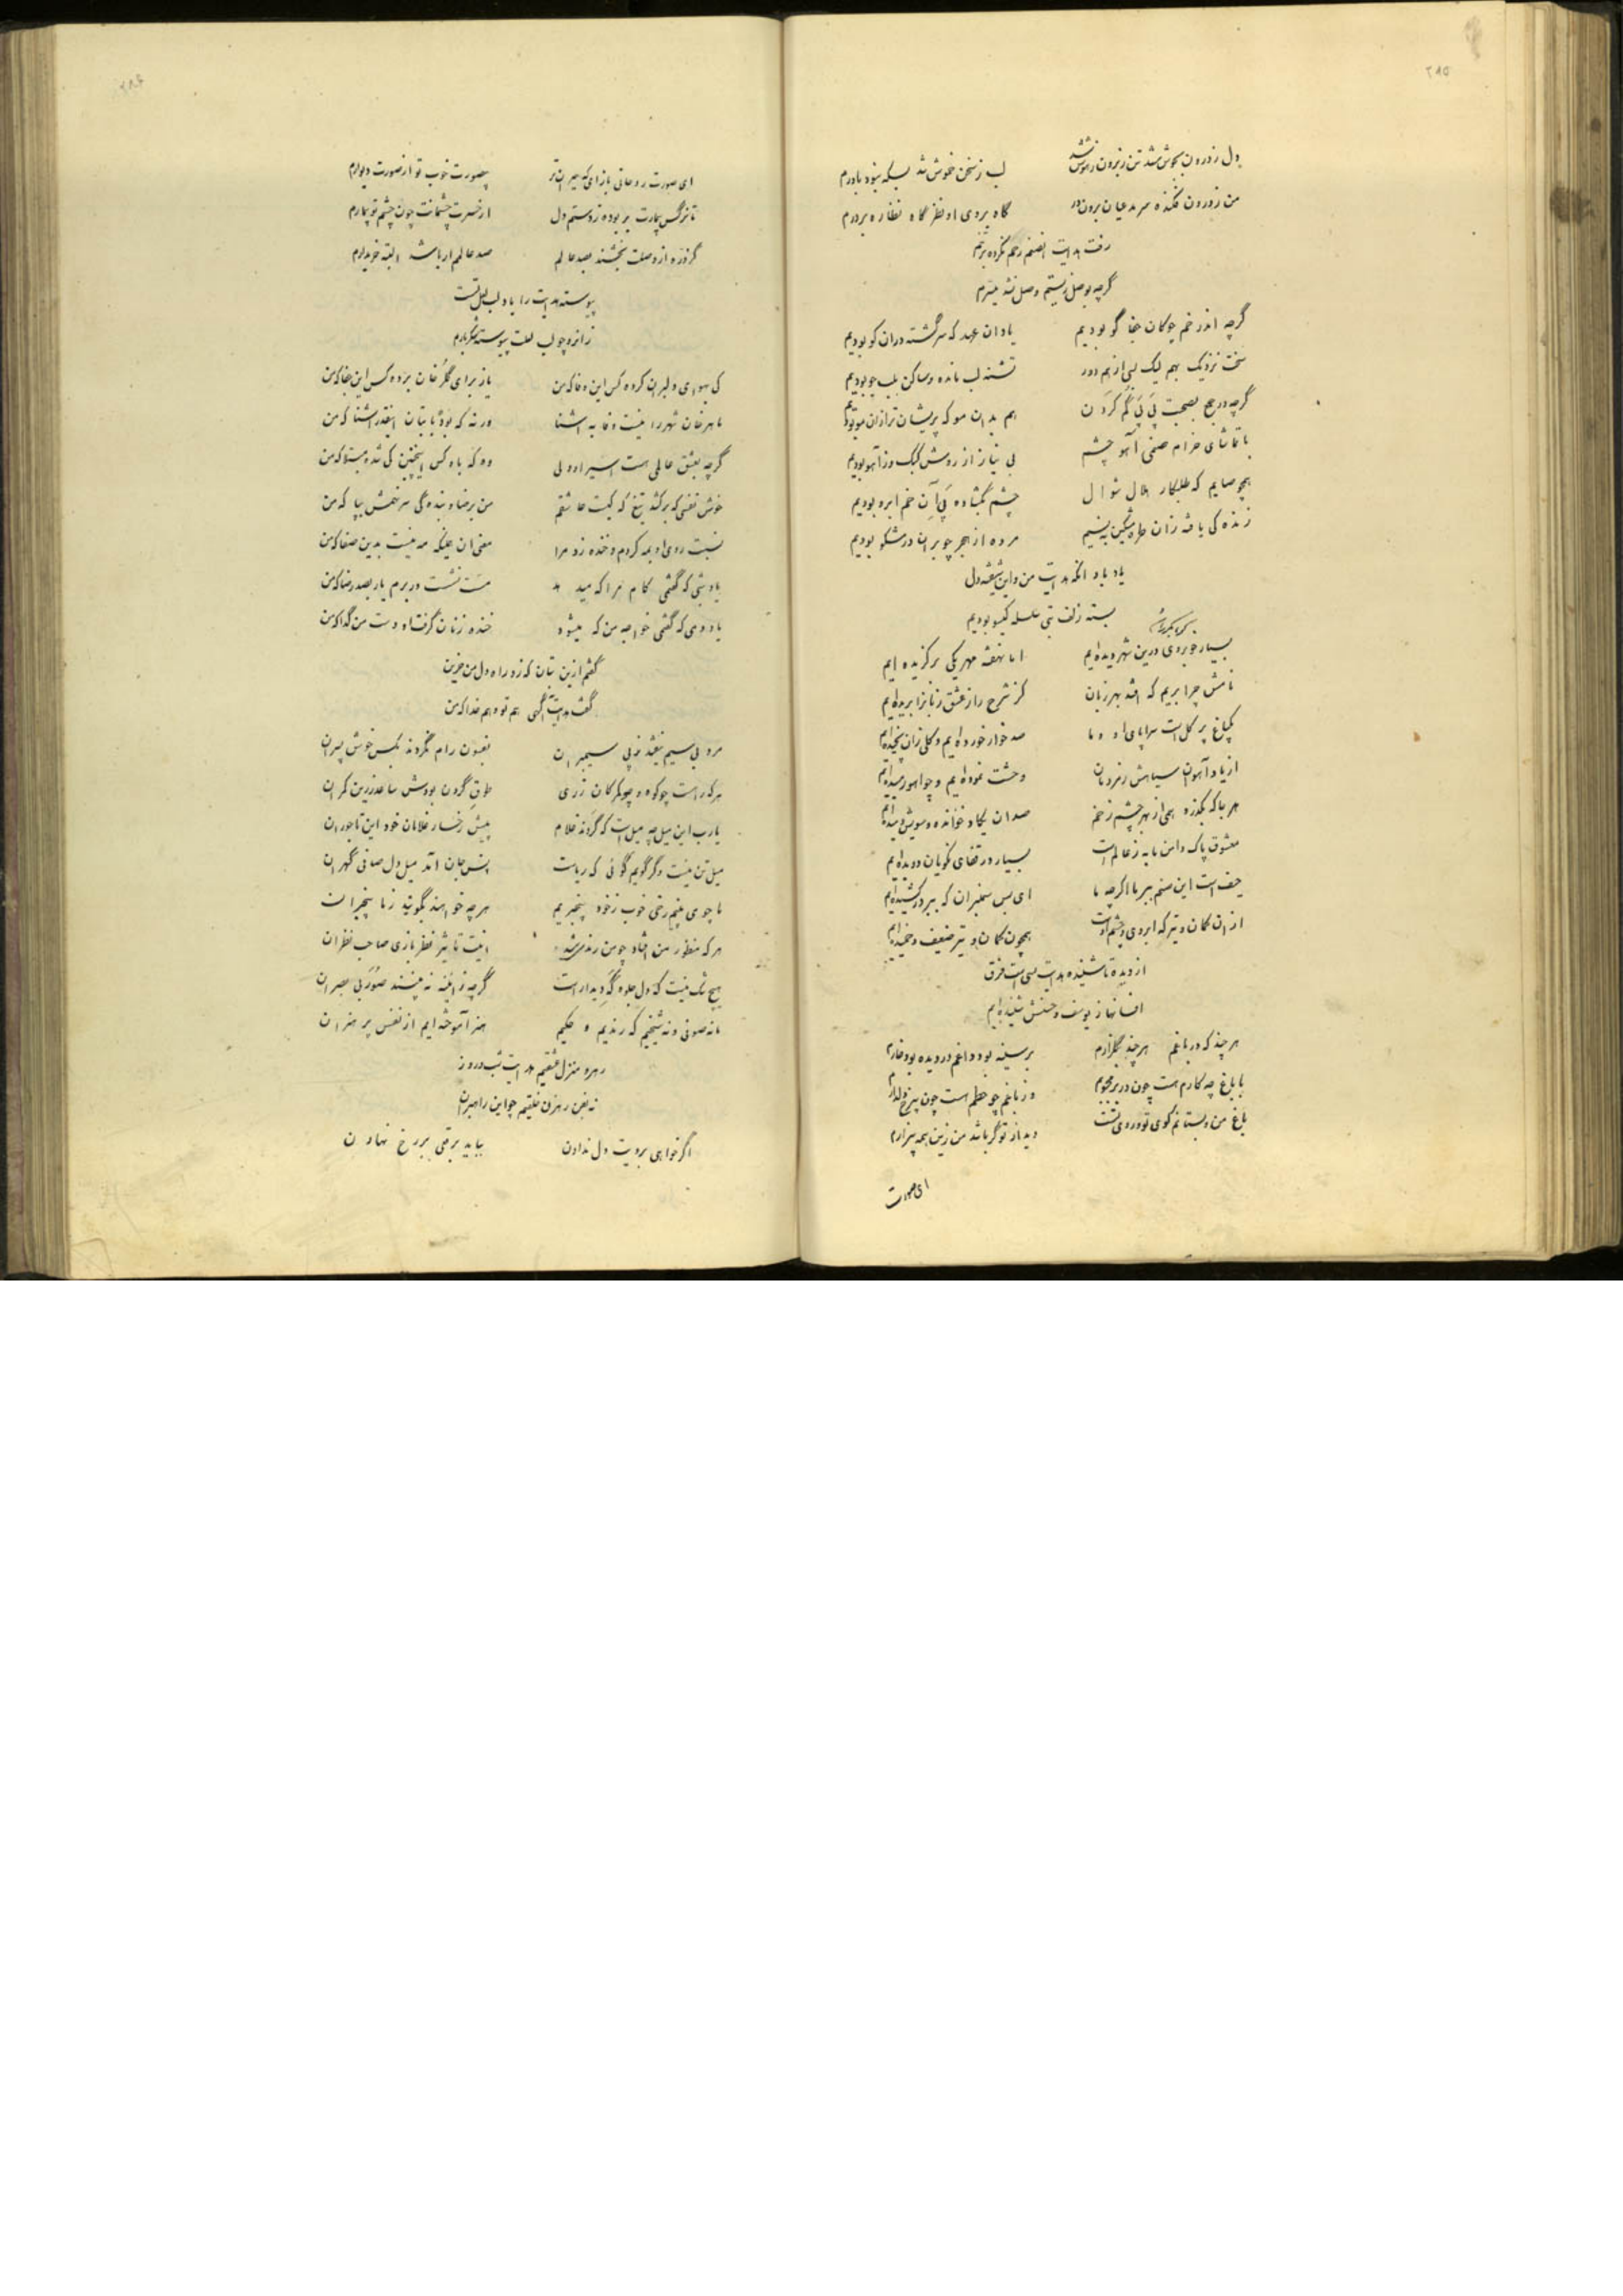 ۲۸۵
دل ز درون بجوش شد تن ز برون
لب ز سخن خموش شد بسکه نبود باورم
من ز درون فکنده سر مدعیان برون در
گاه بروی او نظر گاه نظاره بر درم
رفت هدایت رحم نکرد
گرچه بوصل زیستم وصل نشد میسرم
گرچه اندر خم چوکان جفا کو بودیم
یاد ان عهد که سرکشته دران کو بودیم
سخت نزدیک بهم لیک بسی از هم دور
تشنه لب مانده و ساکن بلب جو بودیم
هم بدان مو که پریشان تر ازان مو بودیم
با تماشای خرام صنمی آهو چشم
بی نیاز از روش کبک و ز آهو بودیم
همچو صایم که طلبکار هلال شوال
چشم بگشاده پی آن خم ابرو بودیم
زنده کی یافته زان طره مشکین
مرده از هجر چو بر ان در مشکو بودیم
یاد باد انکه هدایت من و این شیفته دل
بسته زلف بتی سلسله کیسو بودیم
بسیار خوبروی درین شهر دیده‌ایم
اما نهفته مهر یکی برکزیده ایم
نامش چرا بریم که افتد بهر زبان
کز شرح راز عشق زبانرا بریده‌ایم
یکباغ پر کل است سراپای او و ما
صد خوار خورده‌ایم و کلی زان نچیده‌ایم
از یاد آهوان سیاهش ز مردمان
وحشت نموده‌ایم و چو آهو رمیده‌ایم
هر جا که بگذرد پی از بهر چشم زخم
صد ان یکاد خوانده و سویش دمیده‌ایم
معشوق پاک دامن ما به ز عالم است
بسیار در قفای نکویان دویده‌ایم
حیف است این صنم ببر ما اکرچه ما
ای بس سمنبران که ببر در کشیده‌ایم
از ان کمان و تیر که ابروی و چشم اوست
همچون کمان و تیر ضعیف و خمیده‌ایم
از دیده تا شنیده هدایت بسی است فرق
افسانها ز یوسف و حسنش شنیده‌ایم
هر چند که در باغم هر چند بگلزارم
بر سینه بود داغم در دیده بود خارم
با باغ چه کارم هست چون در بر
باغ من و بستانم کوی تو و روی تست
دیدار تو گر باشد من زین همه بیزارم
ای صورت
۲۸۶
ای صورت روحانی بازای که
بیصورت خوب تو از صورت دیوارم
تا نرگس بیمارت بربوده ز دستم دل
از حسرت چشمانت چون چشم تو بیمارم
گر ذره از وصلت بخشند بصد عالم
صد عالم ار باشد البته خریدارم
پیوسته هدایت را یاد لب لعل تست
زانرو چو لب لعلت پیوسته شکربارم
کی بهوای دلبران کرده کس این وفا که من
باز برای گلرخان برده کس این جفا که من
ماهرخان شهر را نیست وفا به اشنا
ورنه که بود با بتان اینقدر اشنا که من
گرچه بعشق عالمی هست اسیر او ولی
وه که بلاه کس اینچنین کی شده مبتلا که من
خوش نفسی که برکشد تیغ که کیست عاشقم
من برضا و بنده‌گی سر نهمش بپا که من
نسبت روی او بمه کردم و خنده زد مرا
معنی ان علیکه مه نیست بدین صفا که من
یاد شبی که گفتمی کام مرا که میدهد
مست نشست در برم یار بصد رضا که من
یاد دمی که گفتمی خواجه من که میشود
خنده زنان گرفت او دست من گدا که من
گفتم ازین بتان که زد راه دل من حزین
گفت هدایت اگهی هم تو و هم خدا که من
مرد بی سیم نیفتد ز پی سیمبران
بفسون رام نگردند بکس خوش پسران
طوق گردن بودش ساعد زرین کمران
یارب این میل چه میل است که گردند غلام
پیش رخسار غلامان خود این تاجوران
میل تن نیست وگر گویم گوئی که ریاست
پس بجان آمد میل دل صافی گهران
ما چو می بینیم رخی خوب ز خود بیخبریم
هرچه خواهند بگویند ز ما بیخبران
هرکه منظور من افتاد چو من رند
اینت تاثیر نظر بازی صاحب نظران
هیچ شک نیست که دل جلوه‌گه دیدار است
گرچه در آینه نه بینند صور بی بصران
ما نه صوفی و نه شیخیم که رندیم و حکیم
هنر آموخته‌ایم از نفس پر هنران
رهرو منزل عشقیم هدایت شب و روز
نه بفن رهزن خلقیم چو این راهبران
اگر خواهی برویت دل ندادن
بباید برقعی بر رخ نهادن